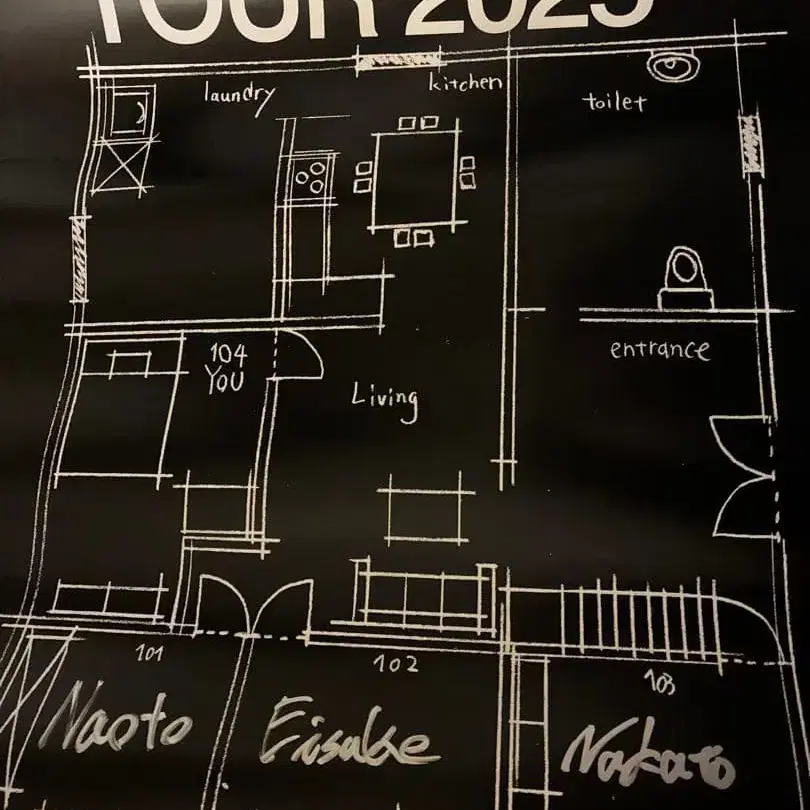 TOUR 2025
laundry
kitchen
toilet
104
YOU
entrance
Living
101
102
103
Naoto
Eisuke
Nakato